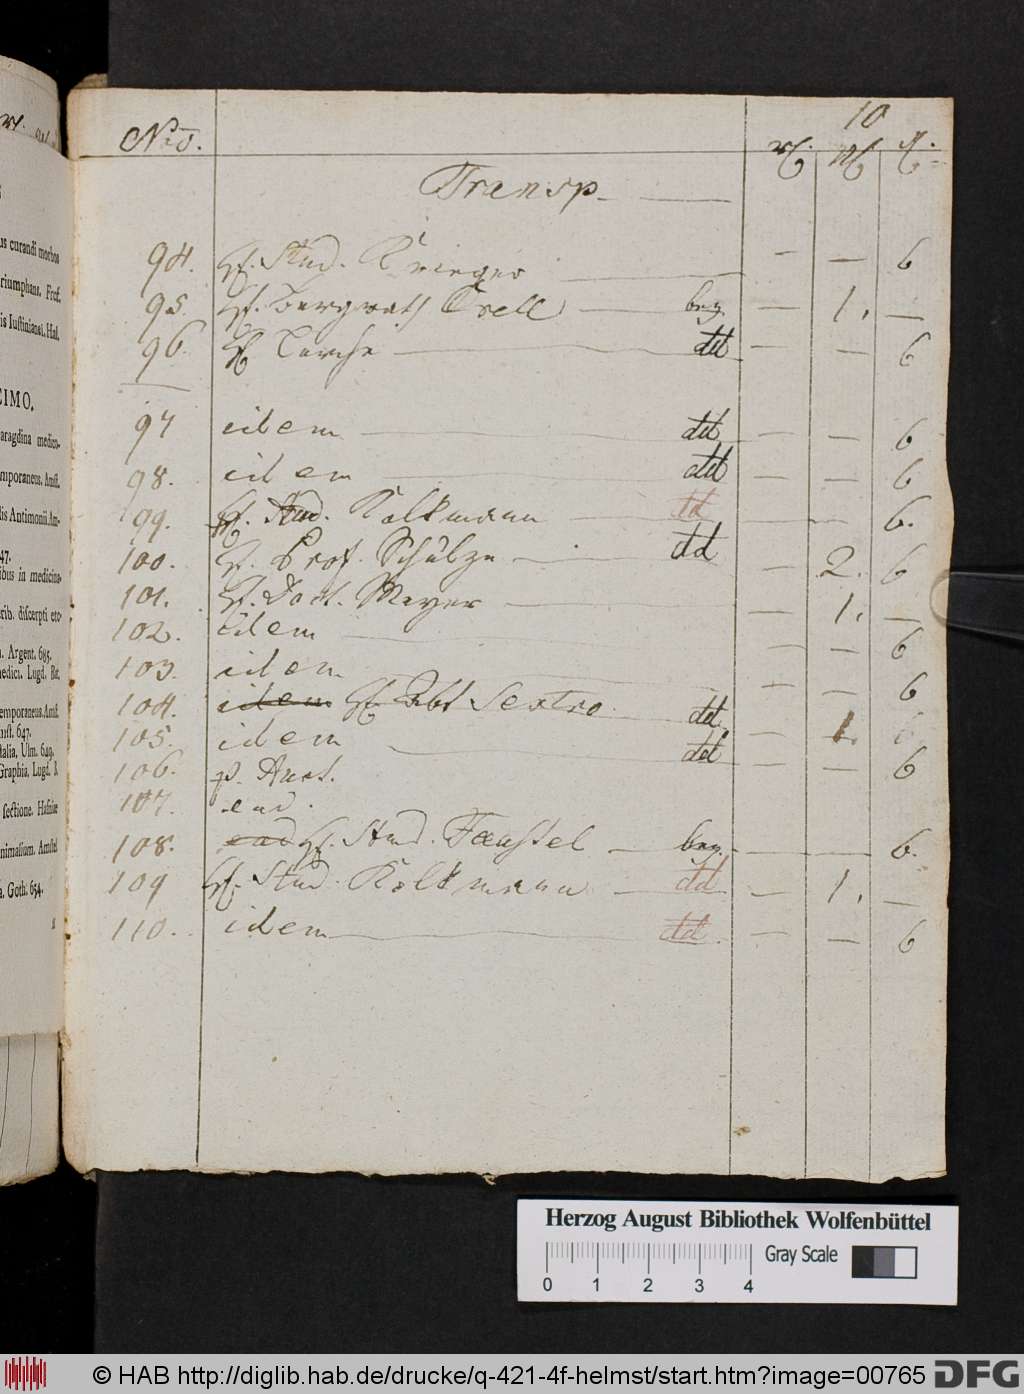 10
No.
Transp.
94. H. Stud. Krieger — — 6
95. H. Bergrath Crell bez. — 1. —
96. H. Lerche dd — — 6
97 idem dd — — 6
98. idem dd — — 6
99. H. Stud. Kolkmann dd — 6.
100. H. Prof. Schulze dd — 2. 6
101. H. Doct. Meyer — 1. —
102. idem — — 6
103. idem — — 6
104. idem H. Abt Sextro dd — 1.
105. idem dd — — 6
106. p. Auct.
107. ead.
108. ead H. Stud. Faustel bez. — 6.
109 H. Stud. Kolkmann dd — 1. —
110. idem dd — — 6
us curandi morbos
riumphans. Frcf.
is Iustinianei. Hal.
CIMO.
aragdina medico-
mporaneus. Amst.
lis Antimonii. Am-
47.
ibus in medicina-
rib. discerpti etc
. Argent. 685.
medici. Lugd. Bat.
emporaneus. Amst.
mst. 647.
talia, Ulm. 649.
Graphia, Lugd. B.
sectione. Hafniae
nimalium. Amstel
a. Goth. 654.
Herzog August Bibliothek Wolfenbüttel
Gray Scale
0 1 2 3 4
© HAB http://diglib.hab.de/drucke/q-421-4f-helmst/start.htm?image=00765
DFG